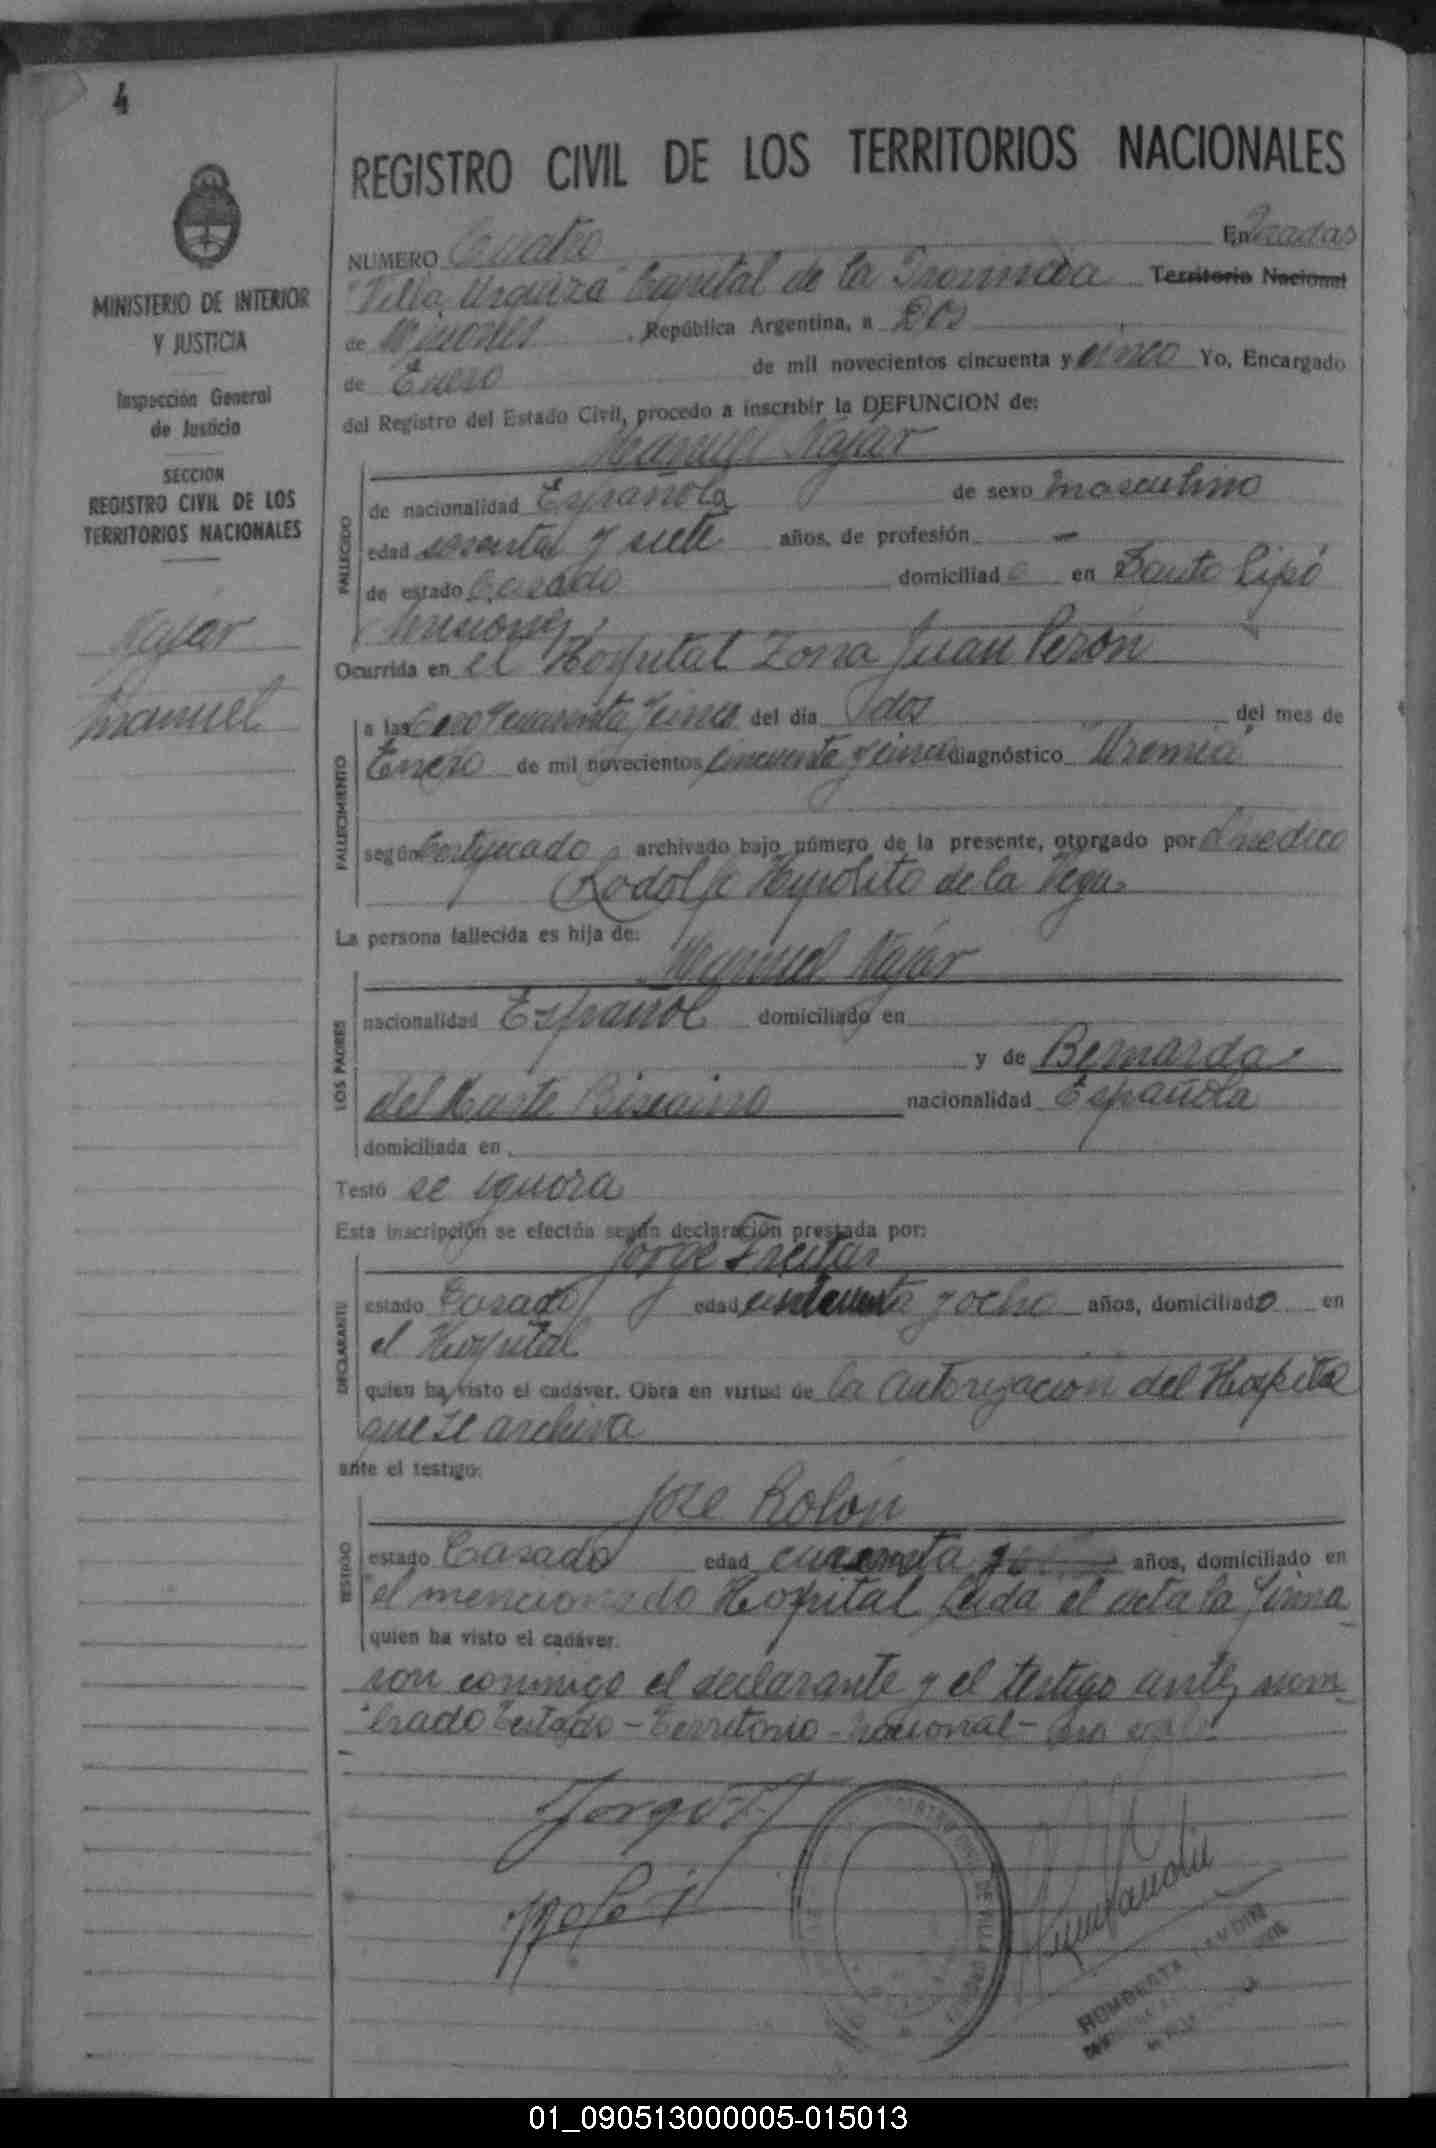 4
REGISTRO CIVIL DE LOS TERRITORIOS NACIONALES
MINISTERIO DE INTERIOR
Y JUSTICIA
Inspección General
de Justicia
SECCION
REGISTRO CIVIL DE LOS
TERRITORIOS NACIONALES
Najár
Manuel
NUMERO Cuatro En Posadas
"Villa Urquiza" Capital de la Provincia Territorio Nacional
de Misiones, República Argentina, a Dos
de Enero de mil novecientos cincuenta y cinco Yo, Encargado
del Registro del Estado Civil, procedo a inscribir la DEFUNCION de:
Manuel Najár
FALLECIDO
de nacionalidad Española de sexo masculino
edad sesenta y siete años, de profesión —
de estado Casado domiciliado en Santo Pipó
Misiones,
Ocurrida en el Hospital Zona Juan Perón
FALLECIMIENTO
a las Cero y cuarenta y cinco del día dos del mes de
Enero de mil novecientos cincuenta y cinco diagnóstico "Uremia"
según Certificado archivado bajo número de la presente, otorgado por el medico
Rodolfo Hypolito de la Vega.
La persona fallecida es hija de:
Manuel Najár
LOS PADRES
nacionalidad Español domiciliado en
y de Bernarda
del Biscaino nacionalidad Española
domiciliada en
Testó se ignora
Esta inscripción se efectúa según declaración prestada por:
Jorge Freitas
DECLARANTE
estado Casado edad cincuenta y ocho años, domiciliado en
el Hospital
quien ha visto el cadáver. Obra en virtud de la autorización del Hospital
que se archiva
ante el testigo:
José Rolón
TESTIGO
estado Casado edad cuarenta años, domiciliado en
el mencionado Hospital Leida el acta la firma
quien ha visto el cadáver.
ron conmigo el declarante y el testigo ante nom
brado Testado - Territorio - Nacional -
Jorge F
HUMBERTA
01_090513000005-015013